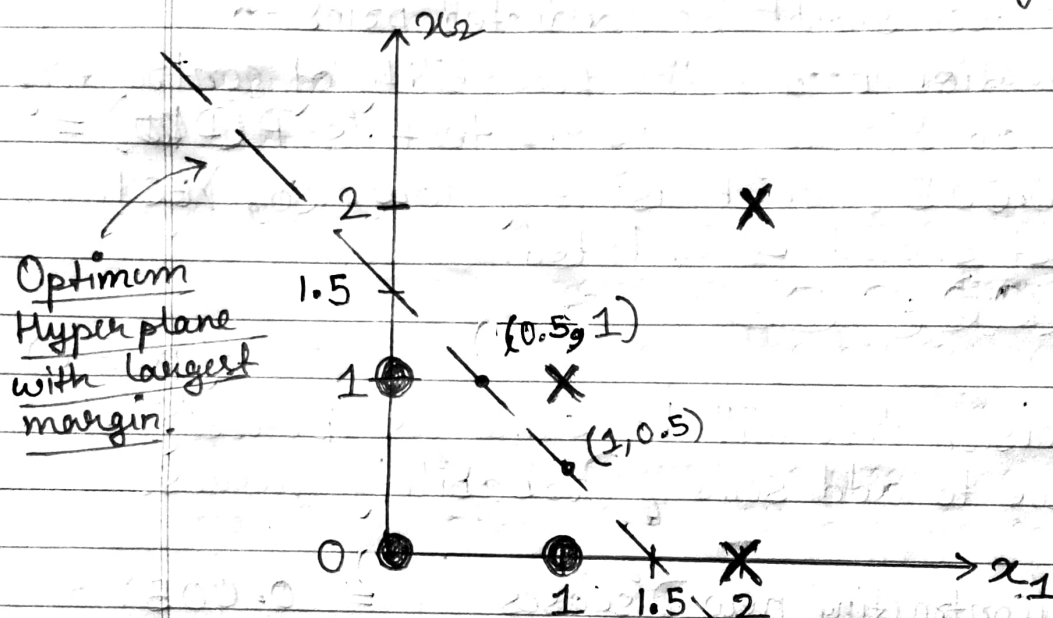 x2
2
Optimum
Hyperplane
with largest
margin.
1.5
(0.5, 1)
1
(1, 0.5)
0
1
1.5
2
x1